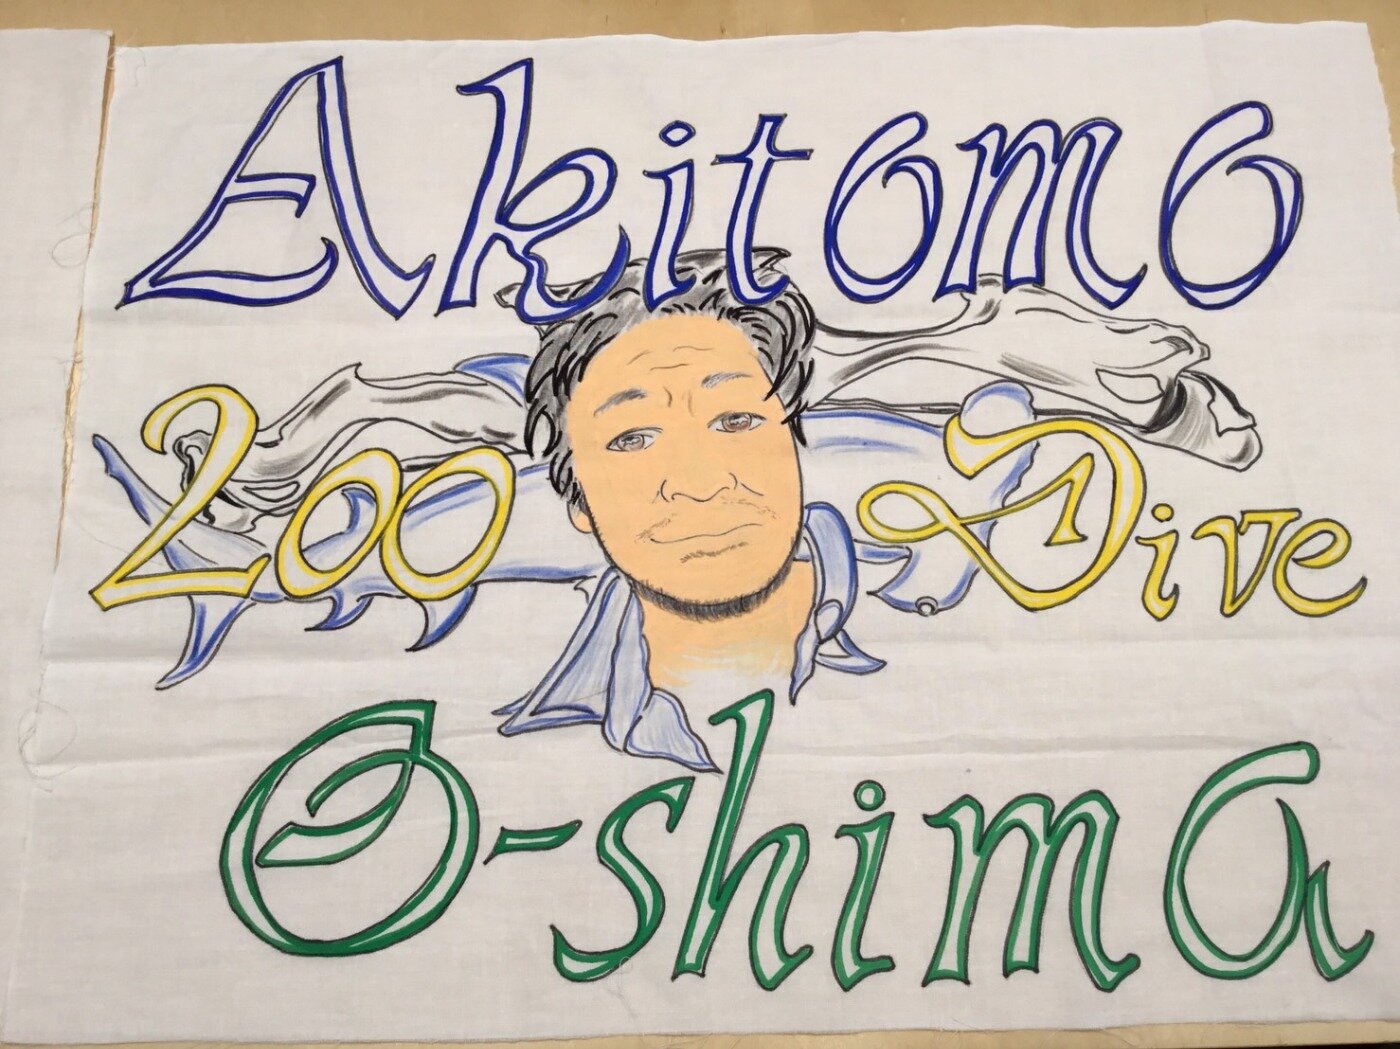 Akitomo
200 Dive
O-shima